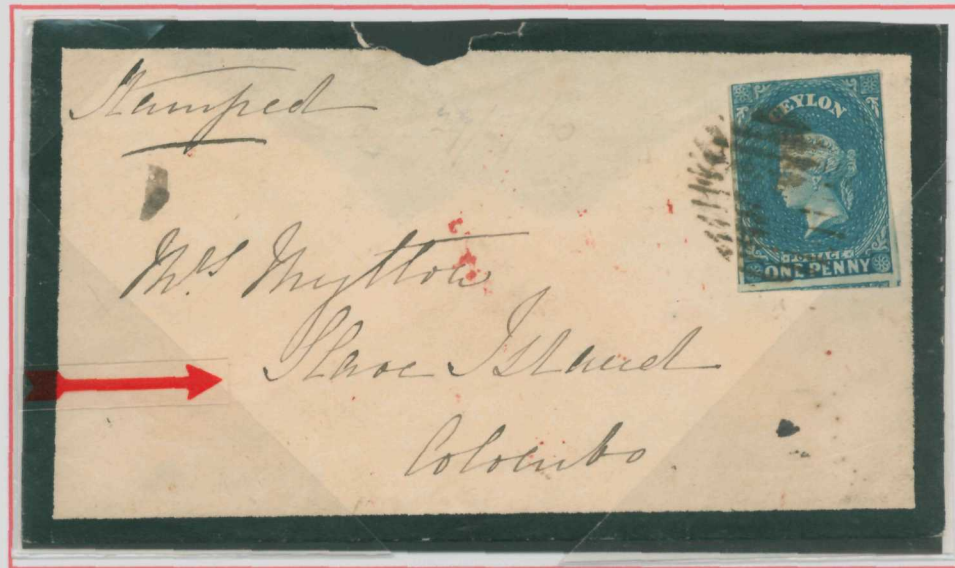 Stamped
CEYLON
POSTAGE
ONE PENNY
Mrs Mytton
Slave Island
Colombo